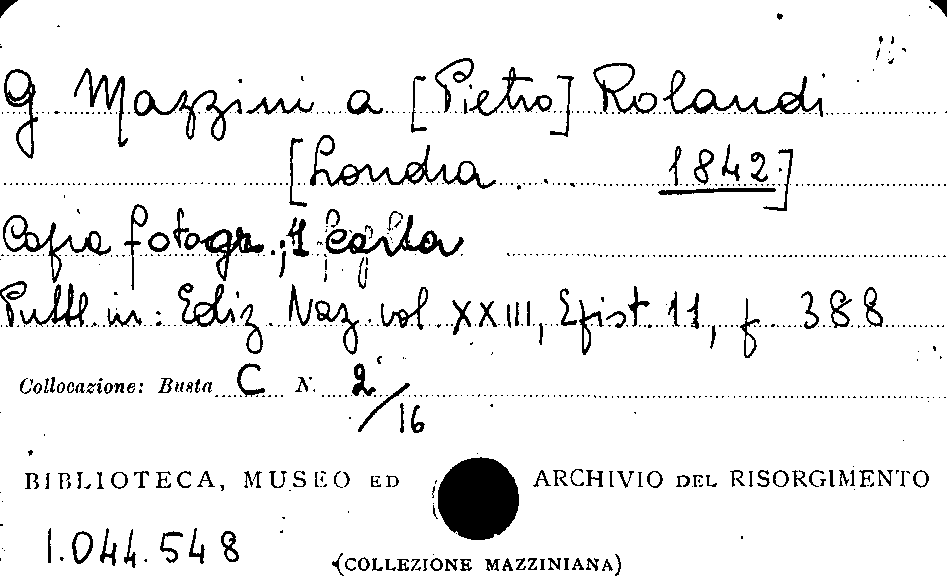 G. Mazzini a [Pietro] Rolandi
[Londra ... 1842]
Copia fotogr.; 1 carta
Pubbl. in: Ediz. Naz. vol. XXIII, Epist. 11, p. 388
Collocazione: Busta C N. 2/16
BIBLIOTECA, MUSEO ED ARCHIVIO DEL RISORGIMENTO
1.044.548
(COLLEZIONE MAZZINIANA)